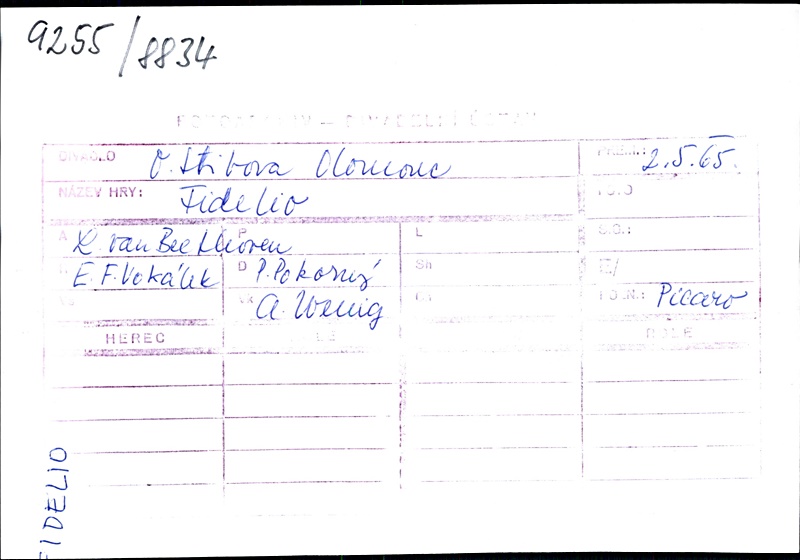 9255/8834
FOTOARCHIV – DIVADELNÍ ÚSTAV
DIVADLO O. Stibora Olomouc PREM.: 2.5.65.
NÁZEV HRY: Fidelio FOTO
A L. van Beethoven P L S.O.:
E. F. Vokálek D P. Pokorný Sh
A. Wenig POZN.: Picaro
HEREC ROLE
FIDELIO